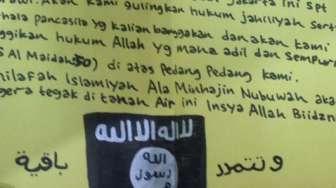 Jakarta ini spt
Akan kami gulingkan hukum jahiliyah sert
hala pancasila yg kalian banggakan dan akan kami
ggikan hukum Allah yg maha adil dan sempur
S Al Maidah:50) di atas Pedang Pedang kami.
hilafah Islamiyah Ala Minhajin Nubuwah aka
gera tegak di tanah Air ini Insya Allah Biidzn
لا اله الا الله
الله
رسول
باقية
وتتمدد